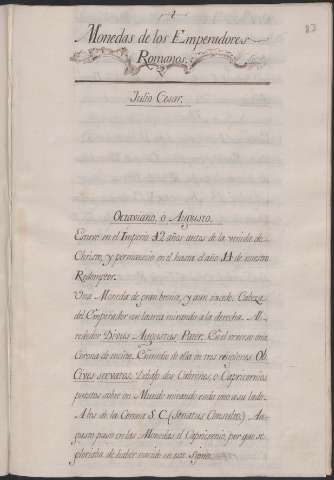 83
Monedas de los Emperadores
Romanos.
Julio Cesar.
Octaviano, o Augusto.
Estuvo en el Imperio 42 años antes de la venida de
Christo, y permaneció en el hasta el año 14 de nuestro
Redemptor.
Una Moneda de gran bronce, y aun excede. Cabeza
del Emperador con laurea mirando a la derecha. Al
rededor Divus Augustus Pater. En el reverso una
Corona de encina. Encima de ella en tres renglones Ob
Cives servatos. Debajo dos Cabrones, o Capricornios
puestos sobre un Mundo mirando cada uno a su lado.
A los de la Corona S. C. (Senatus Consulto). Au-
gusto puso en las Monedas el Capricornio, por que se
gloriaba de haber nacido en este Signo.